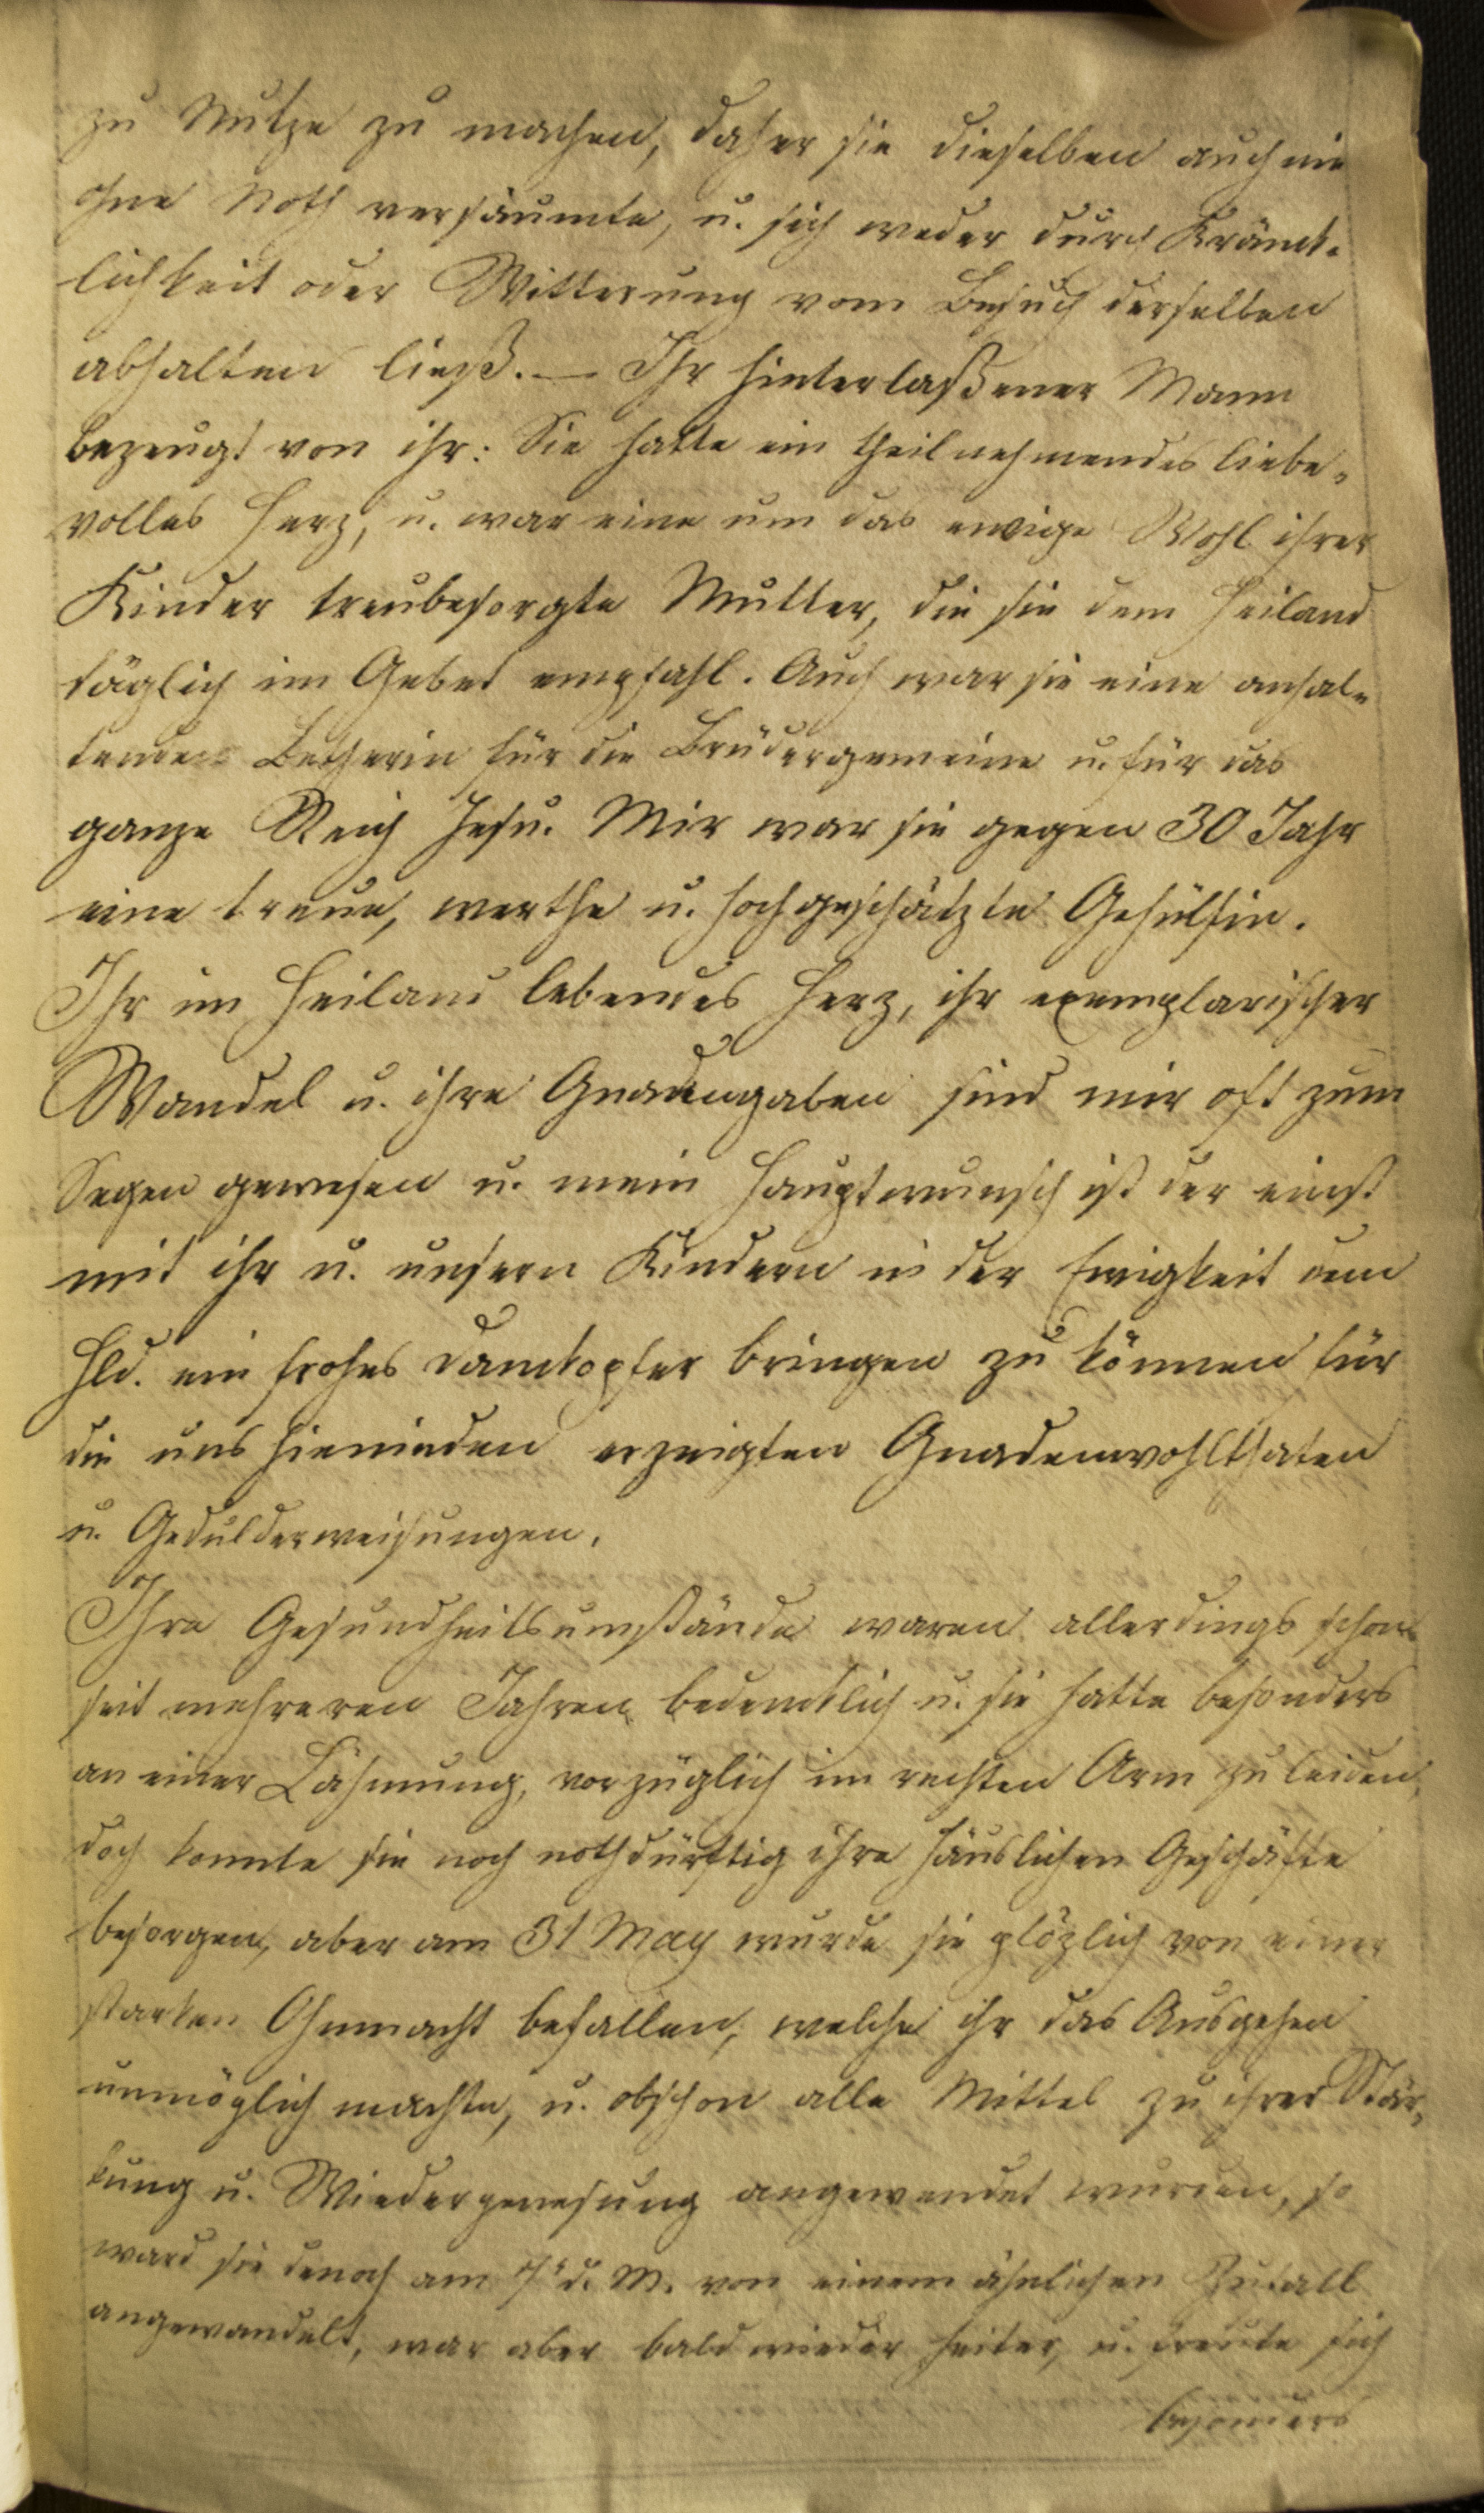 zu Nutze zu machen, daher sie dieselben auch nie
ohne Noth versäumte, u. sich weder durch Kränk-
lichkeit oder Witterung vom Besuch derselben
abhalten ließ. — Ihr hinterlaßener Mann
bezeugt von ihr: Sie hatte ein theilnehmendes liebe-
volles Herz, u. war eine um das ewige Wohl ihrer
Kinder treubesorgte Mutter, die sie dem Heiland
täglich im Gebet empfahl. Auch war sie eine anhal-
tende Betherin für die Brüdergemeine u. für das
ganze Reich Jesu. Mir war sie gegen 30 Jahr
eine treue, werthe u. hochgeschätzte Gehülfin.
Ihr im Heiland lebendes Herz, ihr exemplarischer
Wandel u. ihre Gnadengaben sind mir oft zum
Segen gewesen u. mein Hauptwunsch ist der einst
mit ihr u. unsern Kindern in der Ewigkeit dem
Hld. ein frohes Dankopfer bringen zu können für
die uns hienieden erzeigten Gnadenwohlthaten
u. Gedulderweisungen.
Ihre Gesundheitsumstände waren allerdings schon
seit mehreren Jahren bedencklich u. sie hatte besonders
an einer Lähmung, vorzüglich im rechten Arm zu leiden,
doch konnte sie noch nothdürftig ihre häuslichen Geschäfte
besorgen, aber am 31 May wurde sie plözlich von einer
starken Ohnmacht befallen, welche ihr das Ausgehen
unmöglich machte, u. obschon alle Mittel zu ihrer Stär-
kung u. Wiedergenesung angewendet wurden, so
ward sie denoch am 7t d. M. von einem ähnlichen Zufall
angewandelt, war aber bald wieder heiter, u. freute sich
besonders